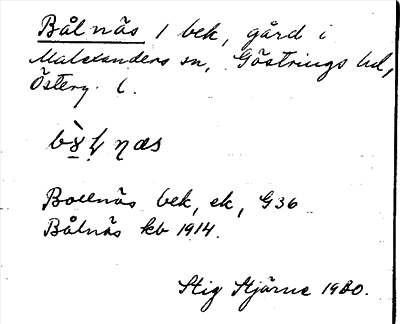 Bålnäs 1 bek, gård i
Malexanders sn, Göstrings hd,
Österg. l.
Boellnäs bek, ek, G36
Bålnäs kb 1914.
Stig Stjärne 1980.